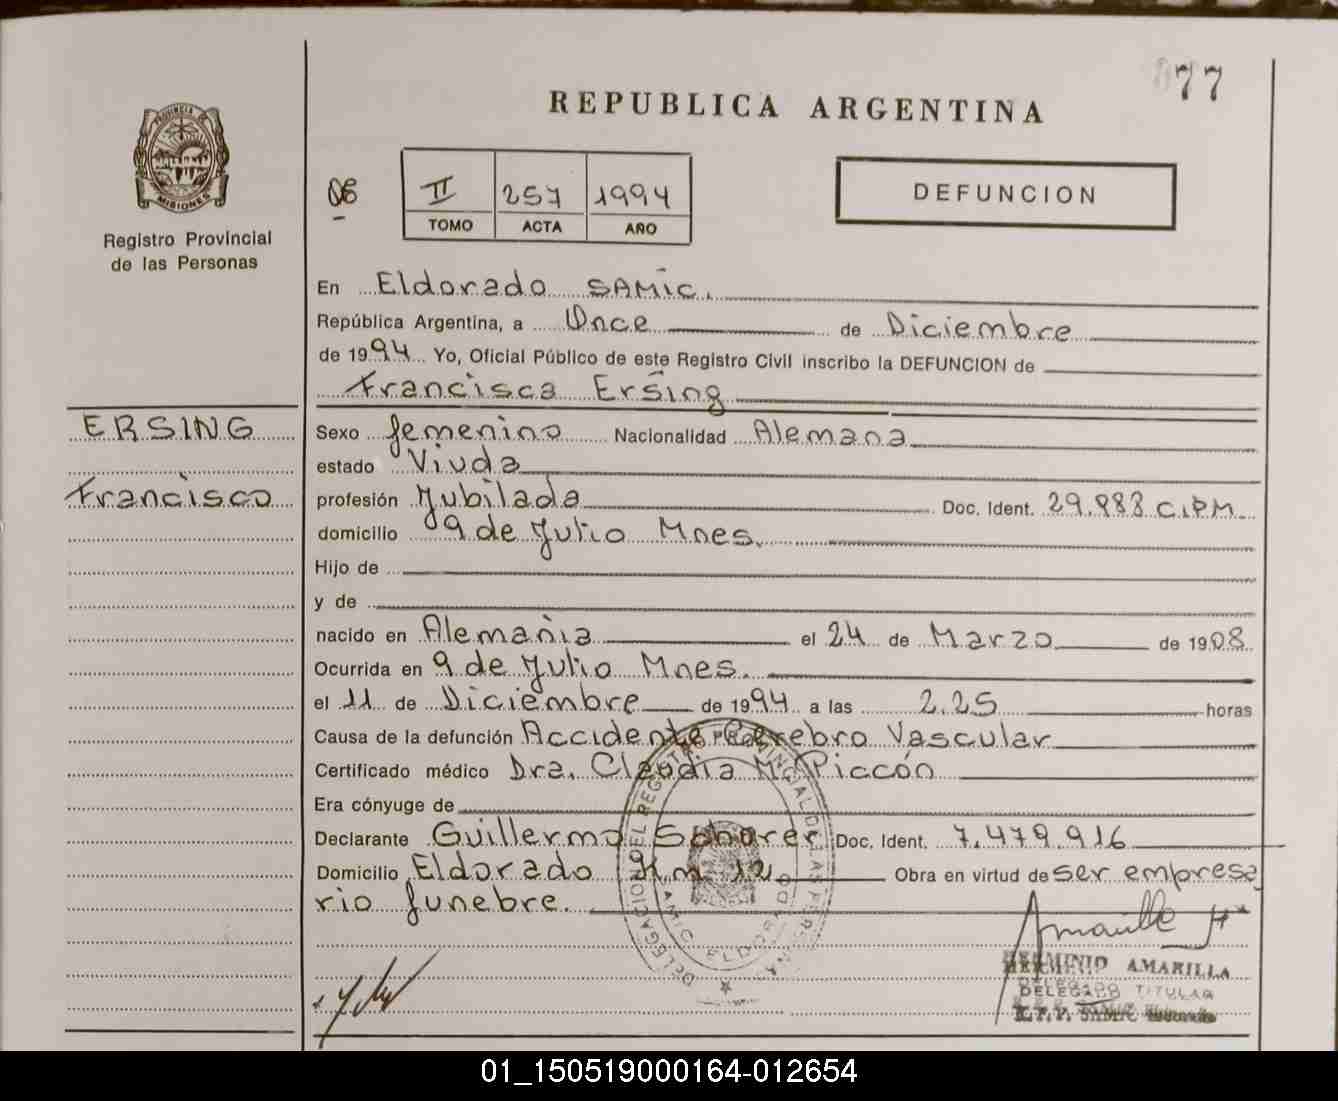 77
REPUBLICA ARGENTINA
PROVINCIA DE
MISIONES
Registro Provincial
de las Personas
II 257 1994
TOMO ACTA AÑO
DEFUNCION
En Eldorado SAMIC.
República Argentina, a Once de Diciembre
de 1994 Yo, Oficial Público de este Registro Civil inscribo la DEFUNCION de
Francisca Ersing
ERSING
Francisco
Sexo femenino Nacionalidad Alemana
estado Viuda
profesión Jubilada Doc. Ident. 29.983 C.I.P.M.
domicilio 9 de Julio Mnes.
Hijo de
y de
nacido en Alemania el 24 de Marzo de 1908
Ocurrida en 9 de Julio Mnes.
el 11 de Diciembre de 1994 a las 2.25 horas
Causa de la defunción Accidente Cerebro Vascular
Certificado médico Dra. Claudia M. Piccón
Era cónyuge de
Declarante Guillermo Schorer Doc. Ident. 7.479.916
Domicilio Eldorado Km 12 Obra en virtud de ser empresa
rio funebre.
DELEGACION DEL REGISTRO PROVINCIAL DE LAS PERSONAS
SAMIC ELDORADO
HERMINIO AMARILLA
DELEGADO TITULAR
R.P.P. SAMIC Eldorado
01_150519000164-012654